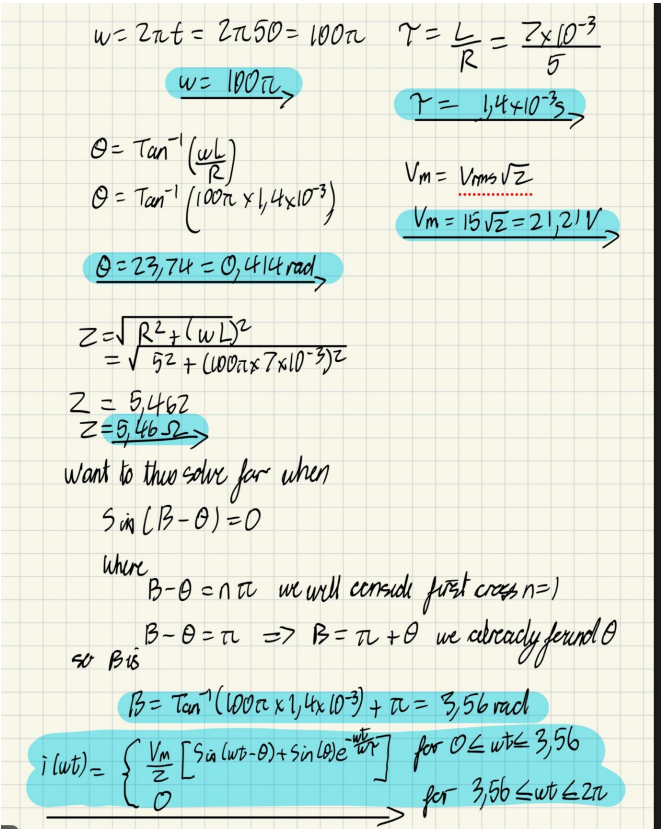 w = 2πt = 2π50 = 100π
w = 100π
τ = L/R = 7×10^-3/5
τ = 1,4×10^-3s
θ = Tan^-1(wL/R)
θ = Tan^-1(100π × 1,4×10^-3)
θ = 23,74 = 0,414 rad
Vm = Vrms√2
Vm = 15√2 = 21,21 V
Z = √R² + (wL)²
= √5² + (100π×7×10^-3)²
Z = 5,462
Z = 5,46 Ω
want to thus solve for when
Sin (B-θ) = 0
where
B-θ = nπ we will conside first cross n=1
B-θ = π => B = π + θ we already found θ
so B is
B = Tan^-1(100π × 1,4×10^-3) + π = 3,56 rad
i(wt) = { Vm/Z [Sin(wt-θ) + Sin(θ)e^-wt/wτ] for 0 ≤ wt ≤ 3,56
0 for 3,56 ≤ wt ≤ 2π